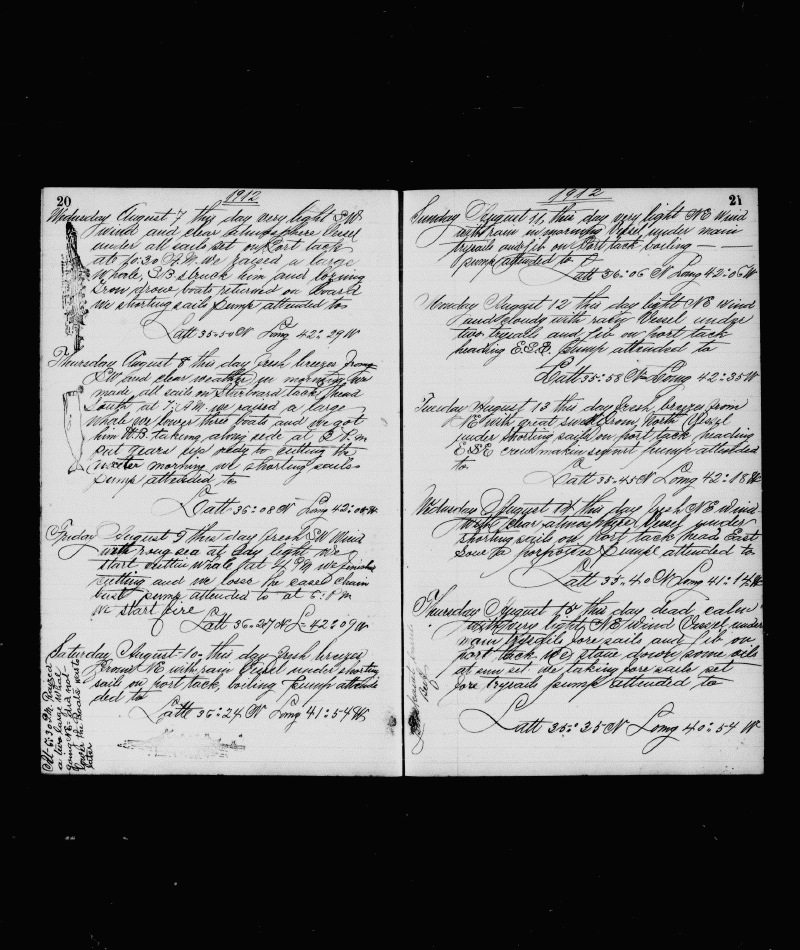 20
1912
Wednesday August 7 this day very light SW
wind and clear atmosphere Vessel
under all sails set on Port tack
at 10:30 A.M. we raised a large
whale, S.B struck him and losing
Iron drove boats returned on board
we shorting sails pump attended to
Latt 35:50 N Long 42:29 W
Thursday August 8 this day fresh breezes from
SW and clear weather in morning we
made all sails on Starboard tack, head
South at 7: A.M. we raised a large
whale we lower three boats and we got
him W.B. taking along side at 2 P.m
put gears up ready to cutting the
morning we shorting sails
pump attended to
Latt 36:08 N Long 42:08 W
Friday August 9 this day fresh SW Wind
with roug sea at day light we
start cuttin whale at 4 PM we finished
cutting and we lose the cased chain
bust pump attended to at 6: P M
we start fire Latt 36:27 N L 42:09 W
Saturday August 10 this day fresh breezes
from NE with rain Vessel under shorting
sails on port tack, boiling pump attended
ded to
Latt 36:24 N Long 41:54 W
At 6:30 PM Raysed
a live large whale
going did not
lower the boats was to
later
21
1912
Sunday August 11, this day very light NE Wind
with rain in morning Vessel under main
trysail and jib on Port tack boiling
pump attended to
Latt 36:06 N Long 42:06 W
Monday August 12 this day light NE wind
and cloudy with rain Vessel under
two trysail and jib on port tack
heading E.S.E. Pump attended to
Latt 35:58 N Long 42:35 W
Tuesday August 13 this day fresh breezes from
NE with great swell from North Vessel
under shorting sails on port tack heading
ESE crew makin pump attended
to
Latt 35:45 N Long 42:18 W
Wednesday August 14 this day fresh NE Wind
with clear atmosphere Vessel under
shorting sails on port tack head East
saw porpoises pump attended to
Latt 35:40 N Long 41:14 W
Thursday August 15 this day dead calm
with very light NE Wind Vessel under
main trysails fore sails and jib on
port tack we stow down some oil
at sun set we taking fore sails set
fore trysails pump attended to
Latt 35:35 N Long 40:54 W